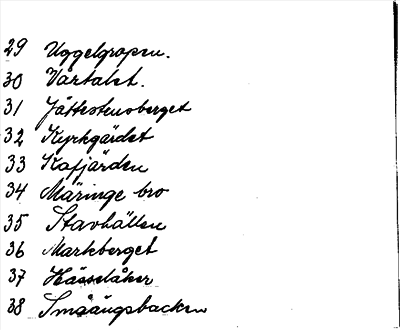 29 Uggelgropen.
30 Vårtalet.
31 Jättestensberget
32 Kyrkgärdet
33 Kafjärden
34 Märinge bro
35 Stavhällen
36 Markberget
37 Hässelåker
38 Småängsbacken